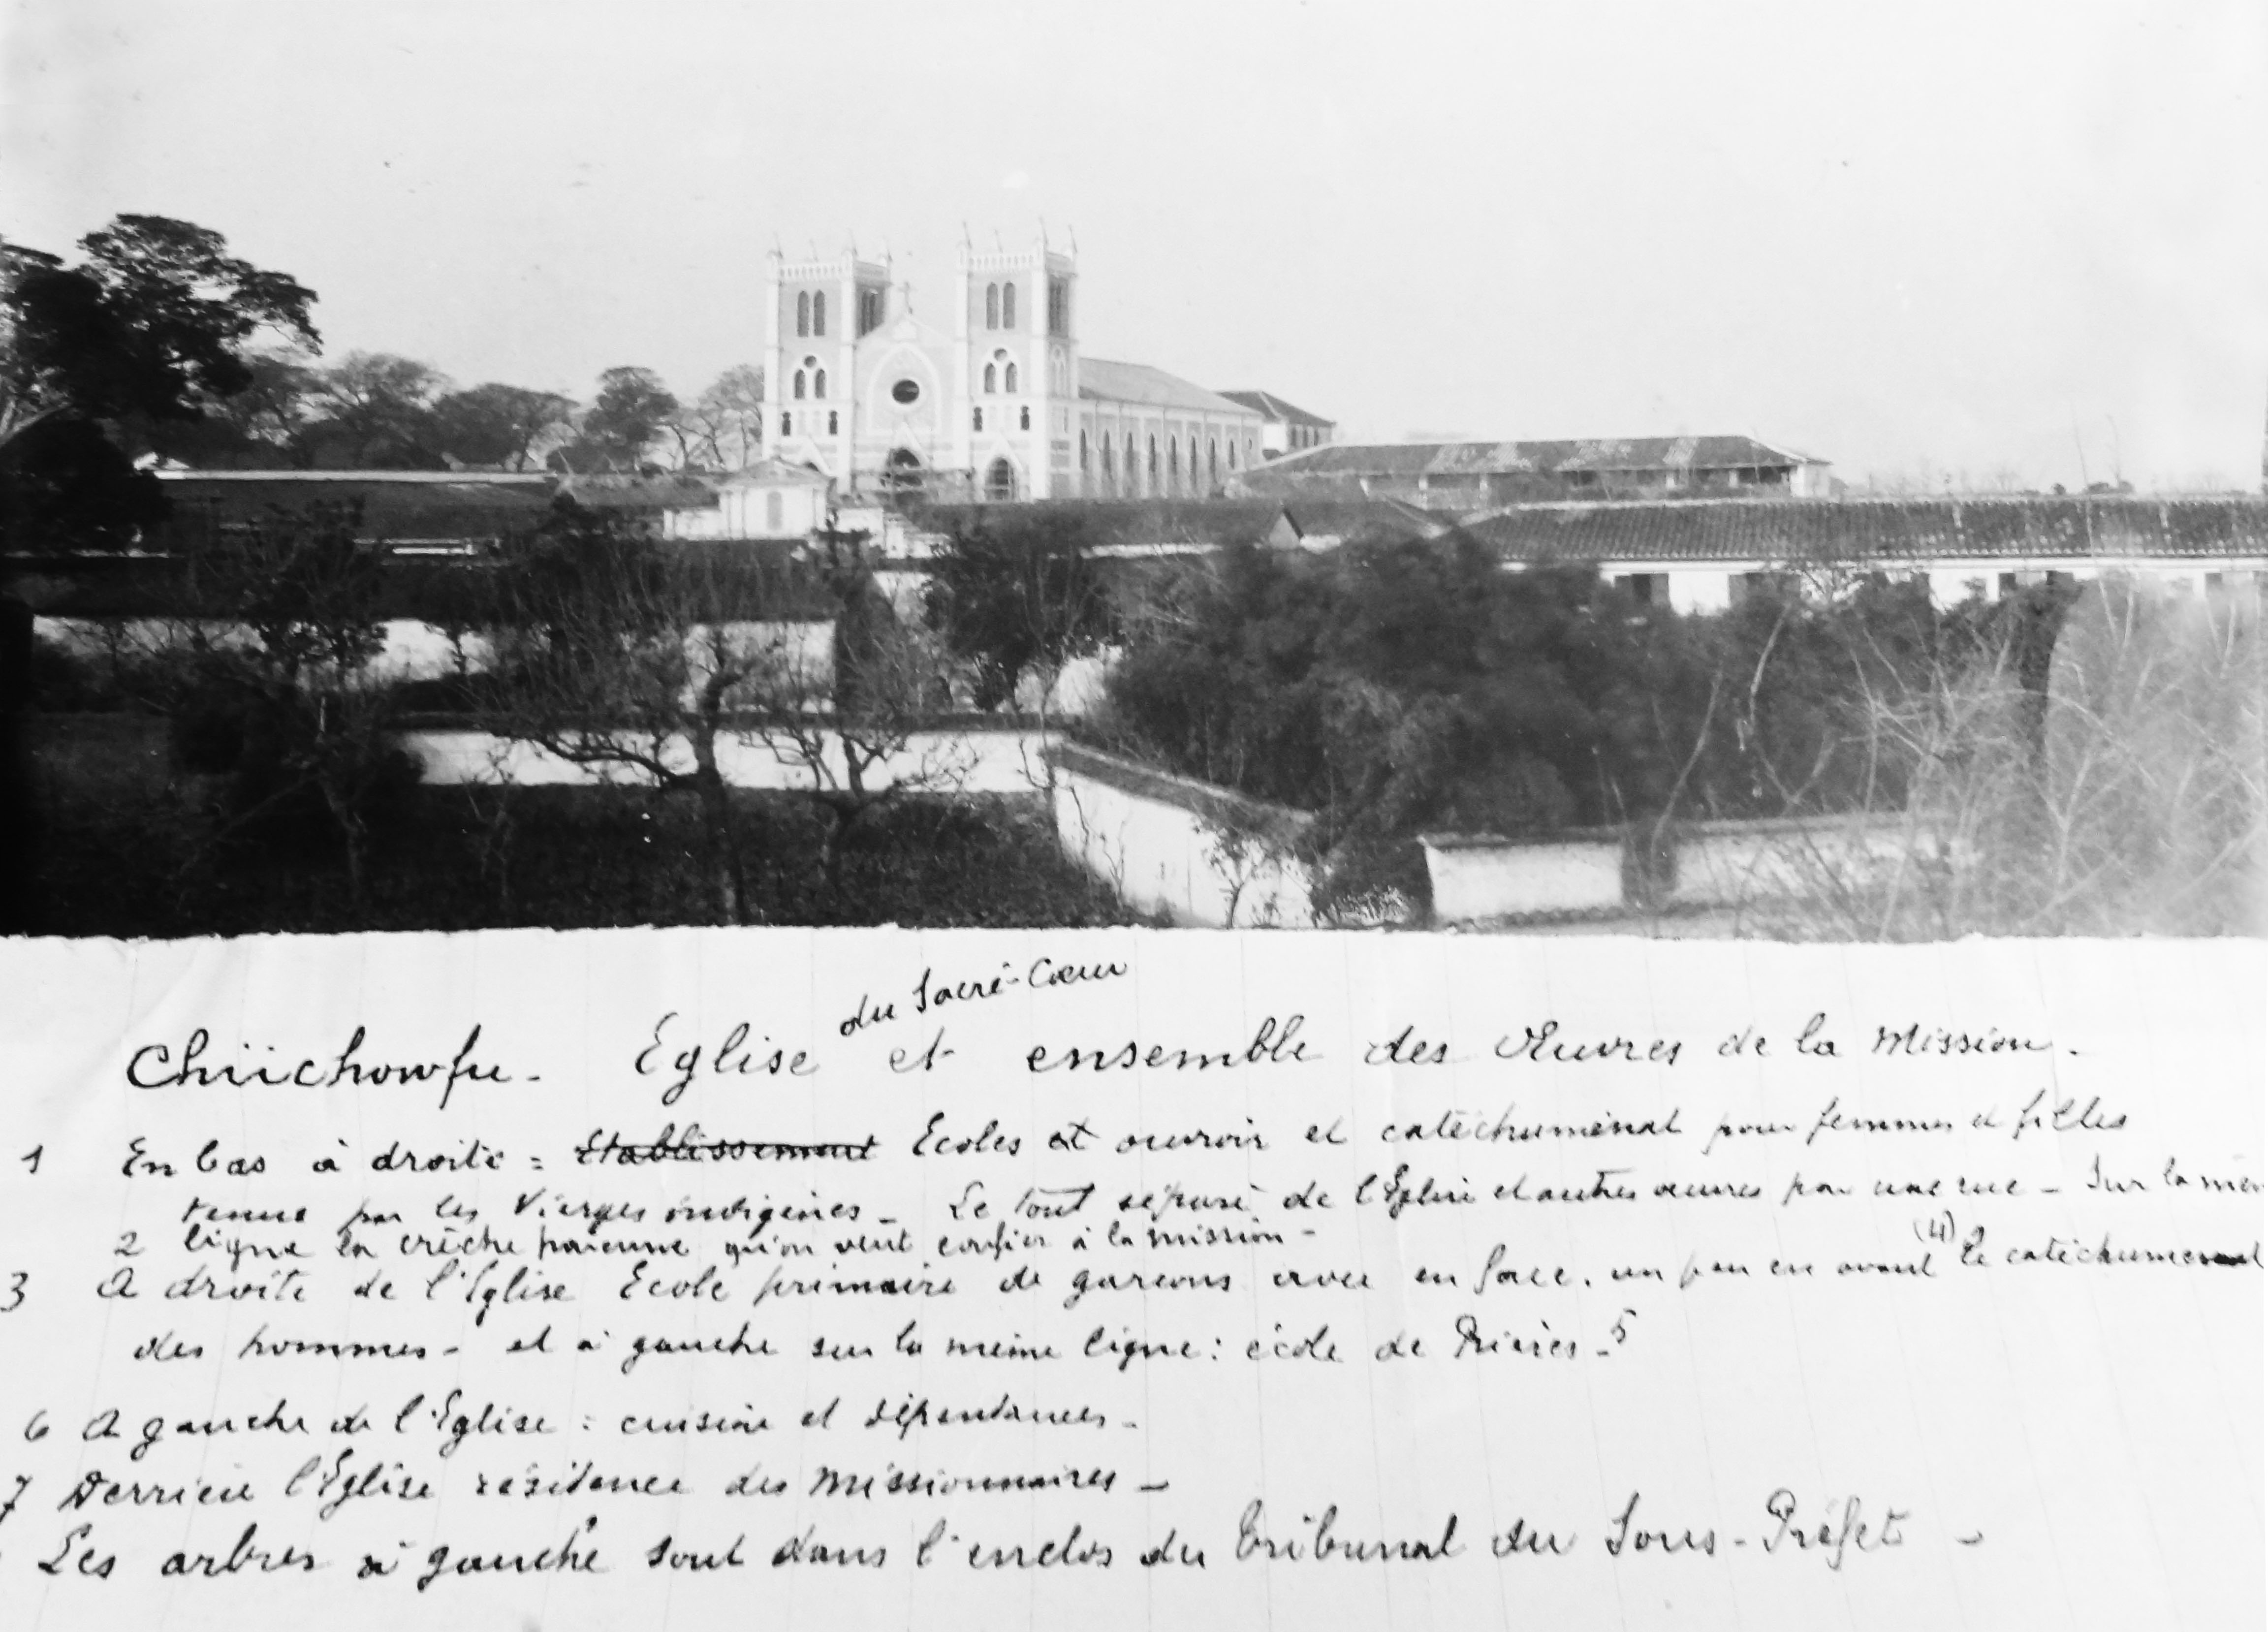 du Sacré-Cœur
Chüchowfu - Eglise et ensemble des Œuvres de la Mission.
1 En bas à droite = Etablissement Ecoles et ouvroir et catéchuménat pour femmes et filles
tenus par les Vierges indigènes - Le tout séparé de l'Eglise et autres œuvres par une rue - Sur la mêm
2 ligne la crèche païenne qu'on veut confier à la mission -
(4)
3 A droite de l'Eglise Ecole primaire de garçons en face, un peu en avant le catéchuménat
des hommes - et à gauche sur la même ligne : école de Prières - 5
6 A gauche de l'Eglise : cuisine et dépendances -
7 Derrière l'Eglise résidence des Missionnaires -
Les arbres à gauche sont dans l'enclos du Tribunal du Sous-Préfet -